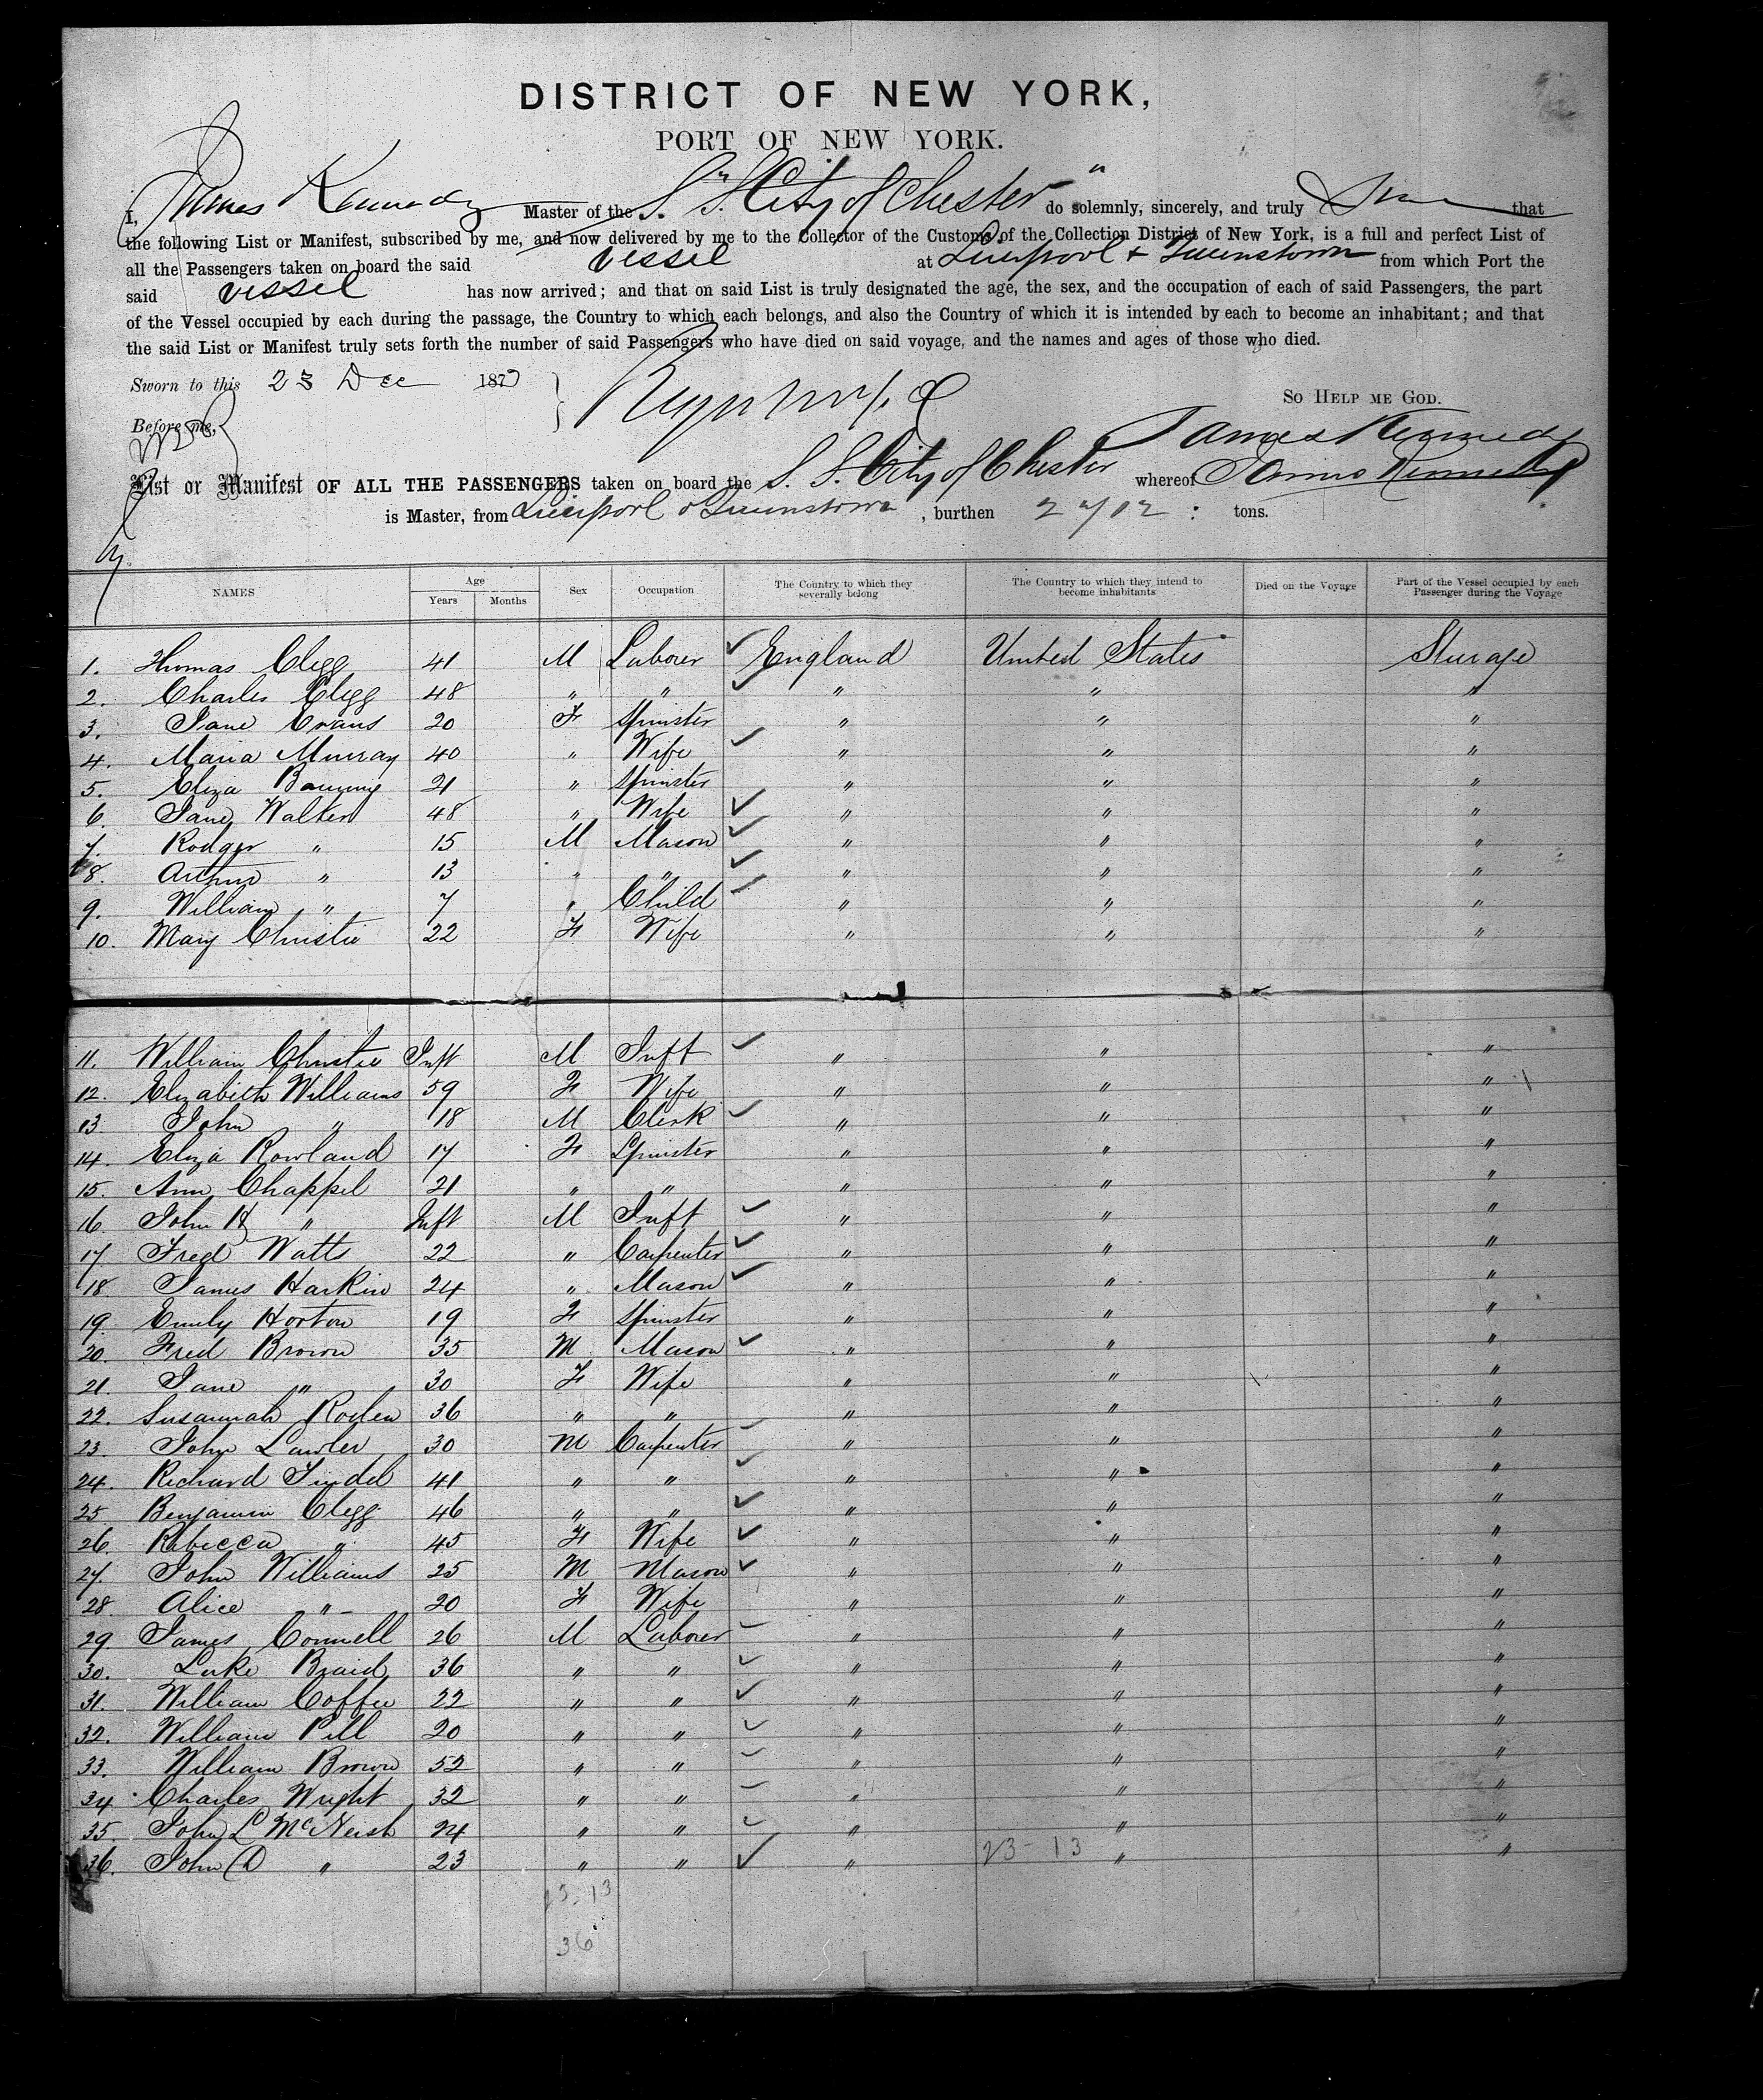 DISTRICT OF NEW YORK,
PORT OF NEW YORK.
I, James Kennedy Master of the S. S. "City of Chester" do solemnly, sincerely, and truly that
the following List or Manifest, subscribed by me, and now delivered by me to the Collector of the Customs of the Collection District of New York, is a full and perfect List of
all the Passengers taken on board the said Vessel at Liverpool & Queenstown from which Port the
said vessel has now arrived; and that on said List is truly designated the age, the sex, and the occupation of each of said Passengers, the part
of the Vessel occupied by each during the passage, the Country to which each belongs, and also the Country of which it is intended by each to become an inhabitant; and that
the said List or Manifest truly sets forth the number of said Passengers who have died on said voyage, and the names and ages of those who died.
Sworn to this 23 Dec 187
So Help me God.
Before me,
James Kennedy
List or Manifest OF ALL THE PASSENGERS taken on board the S. S. City of Chester whereof James Kennedy
is Master, from Liverpool & Queenstown, burthen tons.
NAMES Age Years Months Sex Occupation The Country to which they severally belong The Country to which they intend to become inhabitants Died on the Voyage Part of the Vessel occupied by each Passenger during the Voyage
1. Thomas Clegg 41 M Laborer England United States Sturage
2. Charles Clegg 48 " " " " "
3. Jane Evans 20 F Spinster " " "
4. Maria Murray 40 " Wife " " "
5. Eliza 21 " Spinster " " "
6. Jane Walter 48 " Wife " " "
7. Rodger " 15 M Mason " " "
8. Arthur " 13 " " " " "
9. William " 7 " Child " " "
10. Mary Christie 22 F Wife " " "
11. William Christie Inft M Inft " " "
12. Elizabeth Williams 59 F Wife " " "
13 John " 18 M Clerk " " "
14. Eliza Rowland 17 F Spinster " " "
15. Ann Chappel 21 " " " " "
16 John H " Inft M Inft " " "
17 Fred Watts 22 " Carpenter " " "
18 James Harkin 24 " Mason " " "
19. Emily Horton 19 F Spinster " " "
20. Fred Brown 35 M Mason " " "
21. Jane " 30 F Wife " " "
22. Susannah Roden 36 " " " " "
23. John Lawler 30 M Carpenter " " "
24. Richard Tindel 41 " " " " "
25 Benjamin Clegg 46 " " " " "
26. Rebecca " 45 F Wife " " "
27. John Williams 25 M Mason " " "
28. Alice " 20 F Wife " " "
29 James Connell 26 M Laborer " " "
30. Luke Braid 36 " " " " "
31. William Coffee 22 " " " " "
32. William Pill 20 " " " " "
33. William Brown 52 " " " " "
34 Charles Wright 32 " " " " "
35. John L McNeish 24 " " " " "
36. John D " 23 " " " 23-13 " "
23-13
36